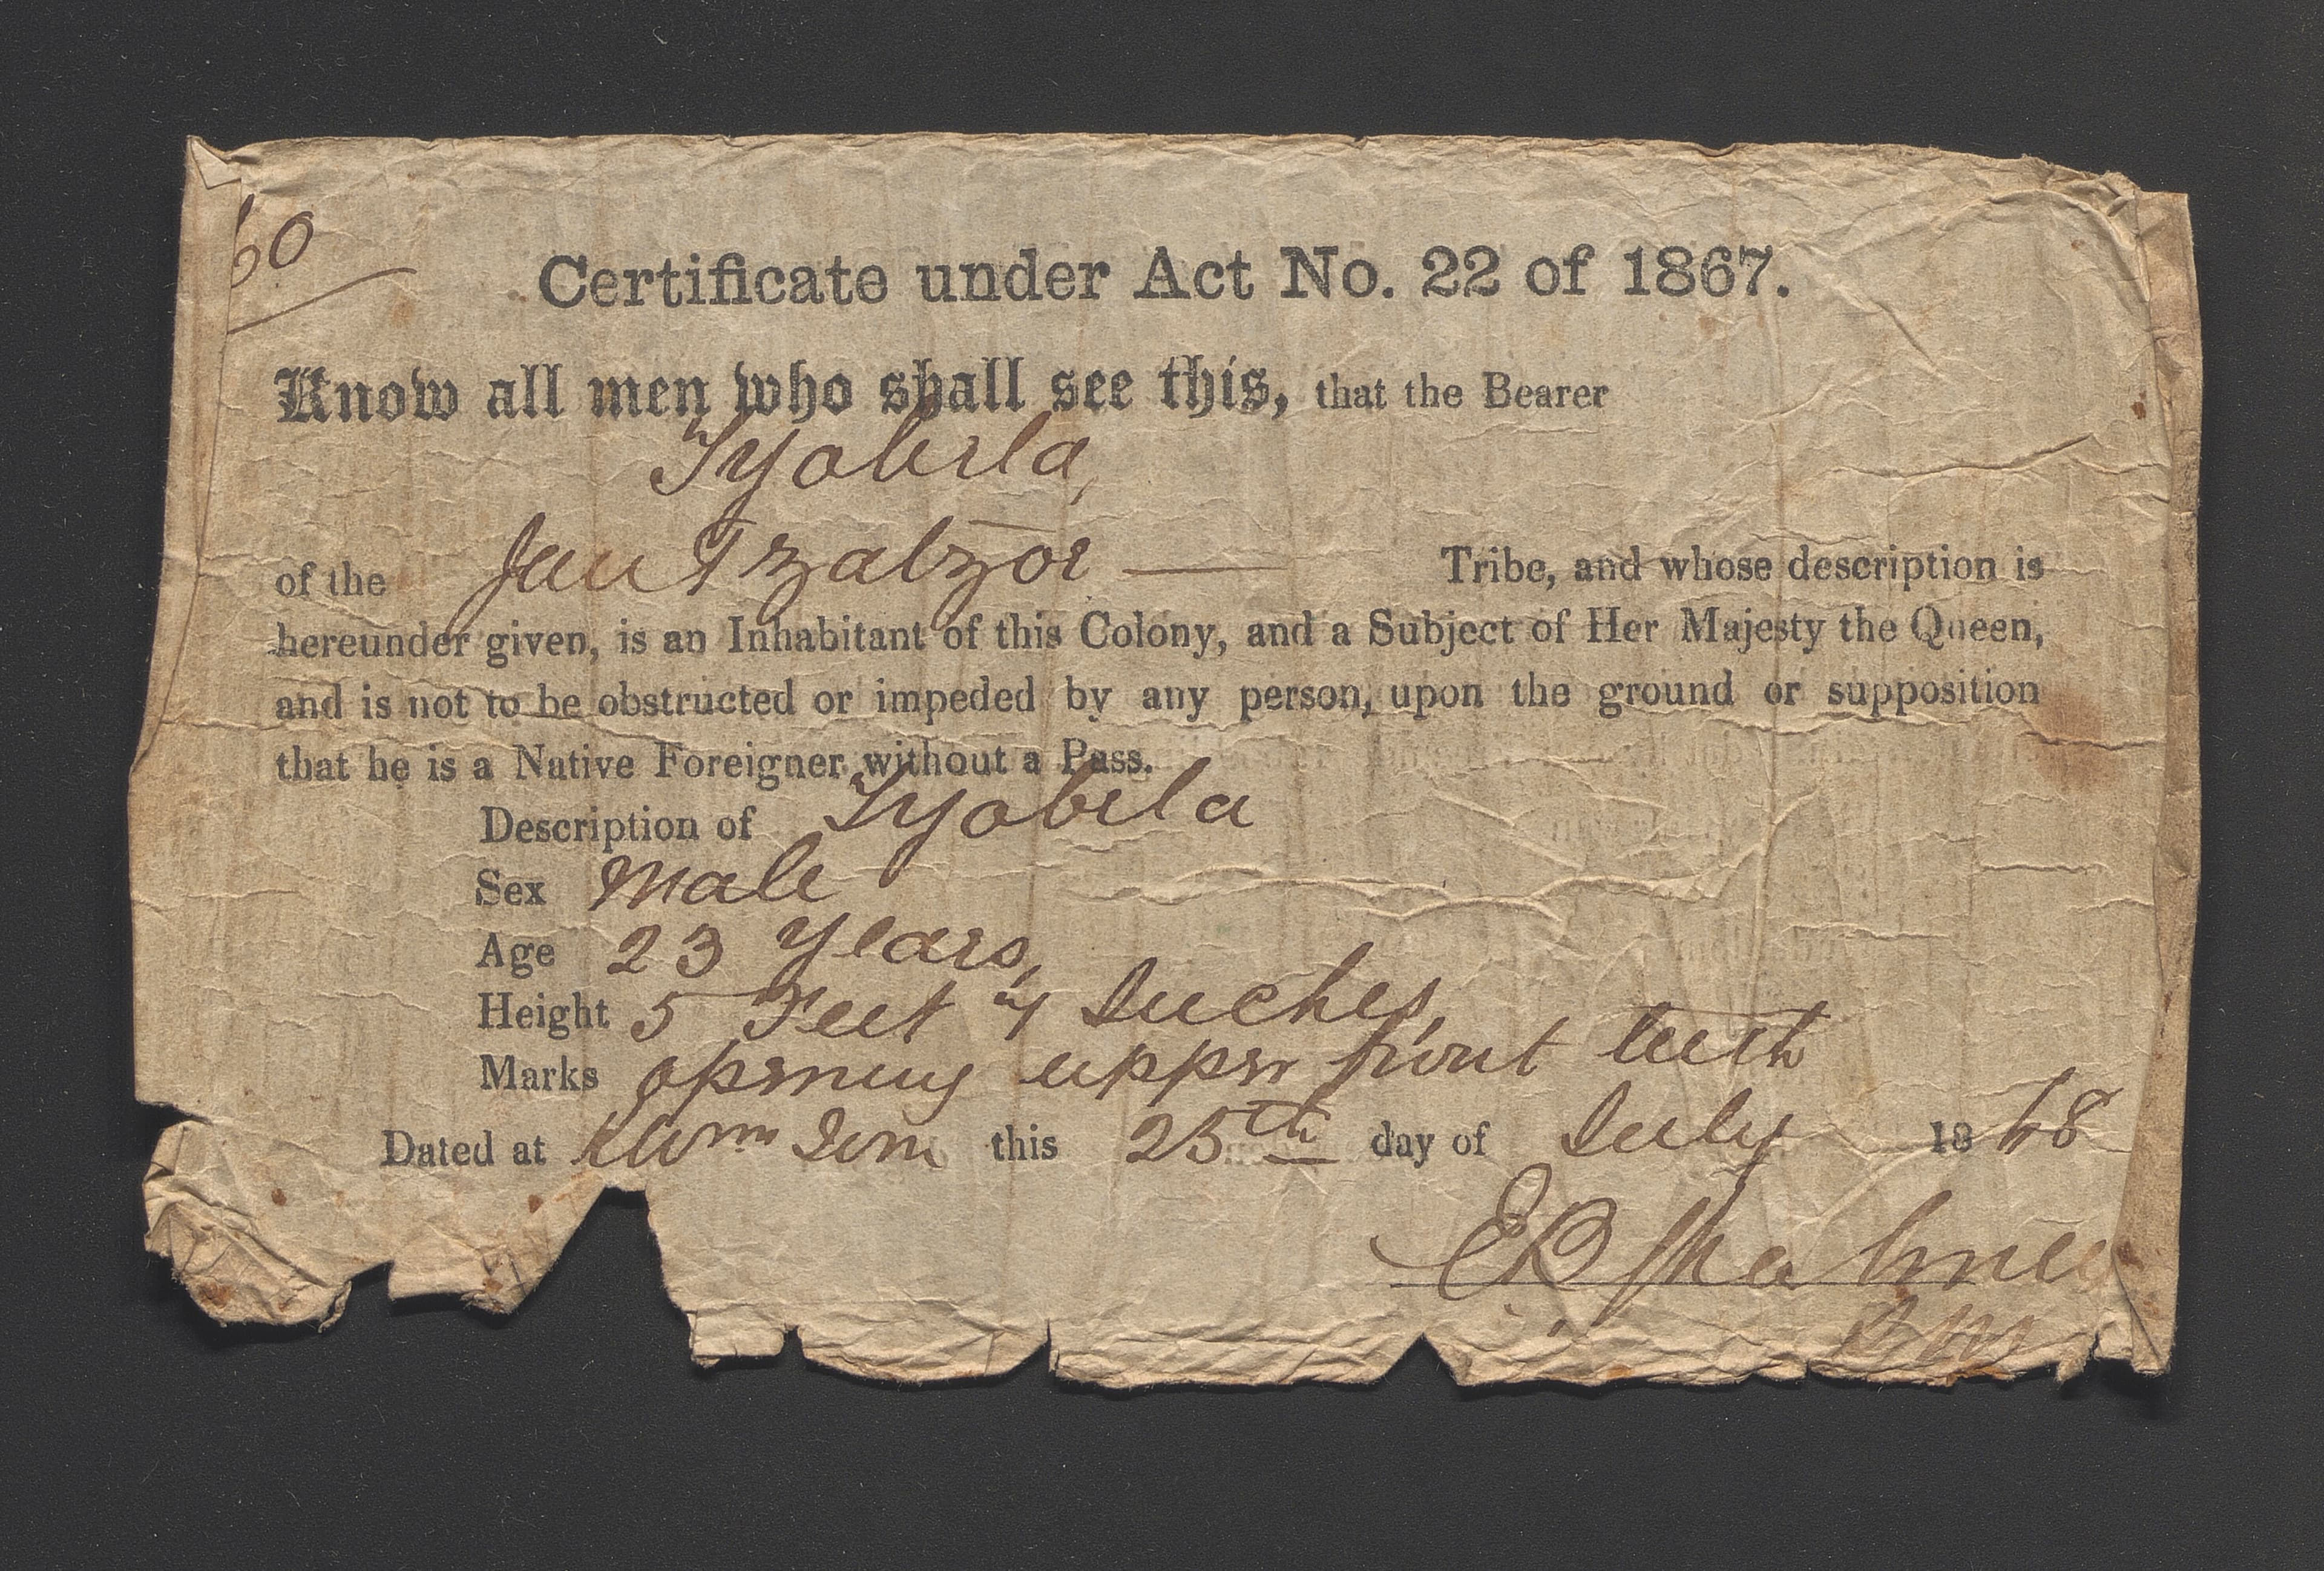 60
Certificate under Act No. 22 of 1867.
Know all men who shall see this, that the Bearer
Tyobila,
of the Jan Tzatzoe — Tribe, and whose description is
hereunder given, is an Inhabitant of this Colony, and a Subject of Her Majesty the Queen,
and is not to be obstructed or impeded by any person, upon the ground or supposition
that he is a Native Foreigner without a Pass.
Description of Tyobila
Sex Male
Age 23 Years,
Height 5 Feet Inches,
Marks opening upper front teeth
Dated at this 25th day of July 1868